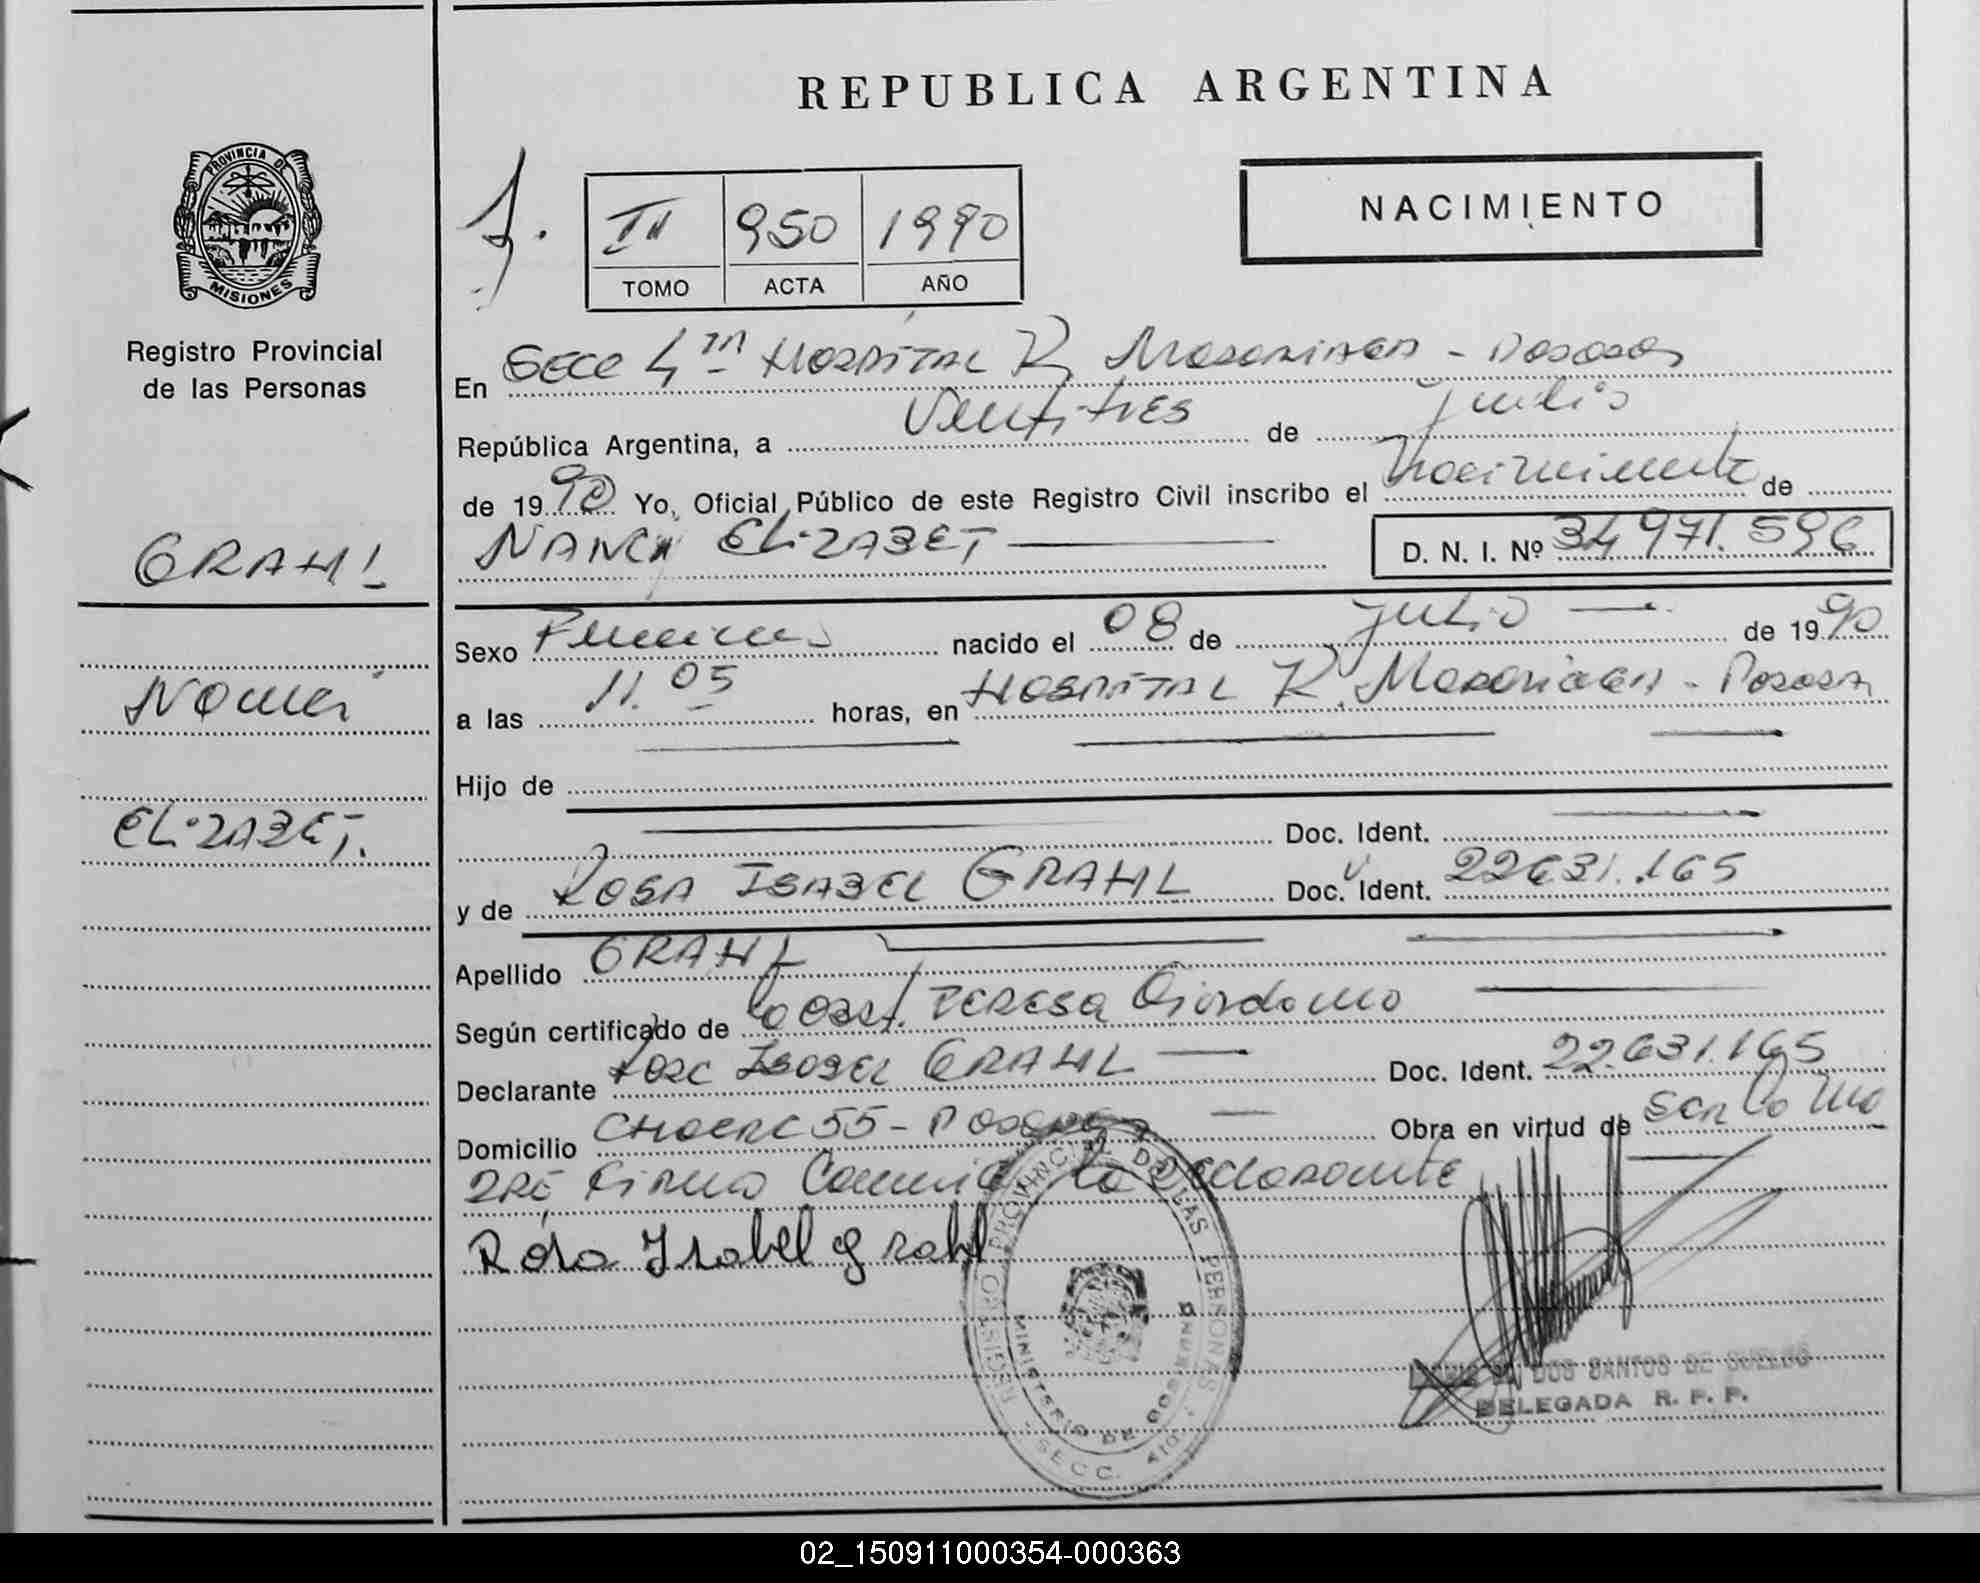 REPUBLICA ARGENTINA
PROVINCIA DE
MISIONES
Registro Provincial
de las Personas
NACIMIENTO
III 950 1990
TOMO ACTA AÑO
En Secc 4ta Hospital R. Madariaga - Posadas
República Argentina, a Veintitres de julio
de 1990 Yo, Oficial Público de este Registro Civil inscribo el Nacimiento de
NANCY ELIZABET D. N. I. Nº 34971.596
GRAHL
Nancy
ELIZABET.
Sexo Femenino nacido el 08 de julio de 1990
a las 11.05 horas, en Hospital R. Madariaga - Posadas
Hijo de
Doc. Ident.
y de ROSA ISABEL GRAHL Doc. Ident. 22631.165
Apellido GRAHL
Según certificado de la Obst. TERESA Giordano
Declarante Rosa Isabel GRAHL Doc. Ident. 22.631.165
Domicilio 55 - Posadas Obra en virtud de ser la
Firma Conmigo la Declarante
Rosa Isabel Grahl
REGISTRO PROVINCIAL DE LAS PERSONAS
MINISTERIO DE GOBIERNO
SECC. 4ta.
DOS SANTOS DE
DELEGADA R. P. P.
02_150911000354-000363